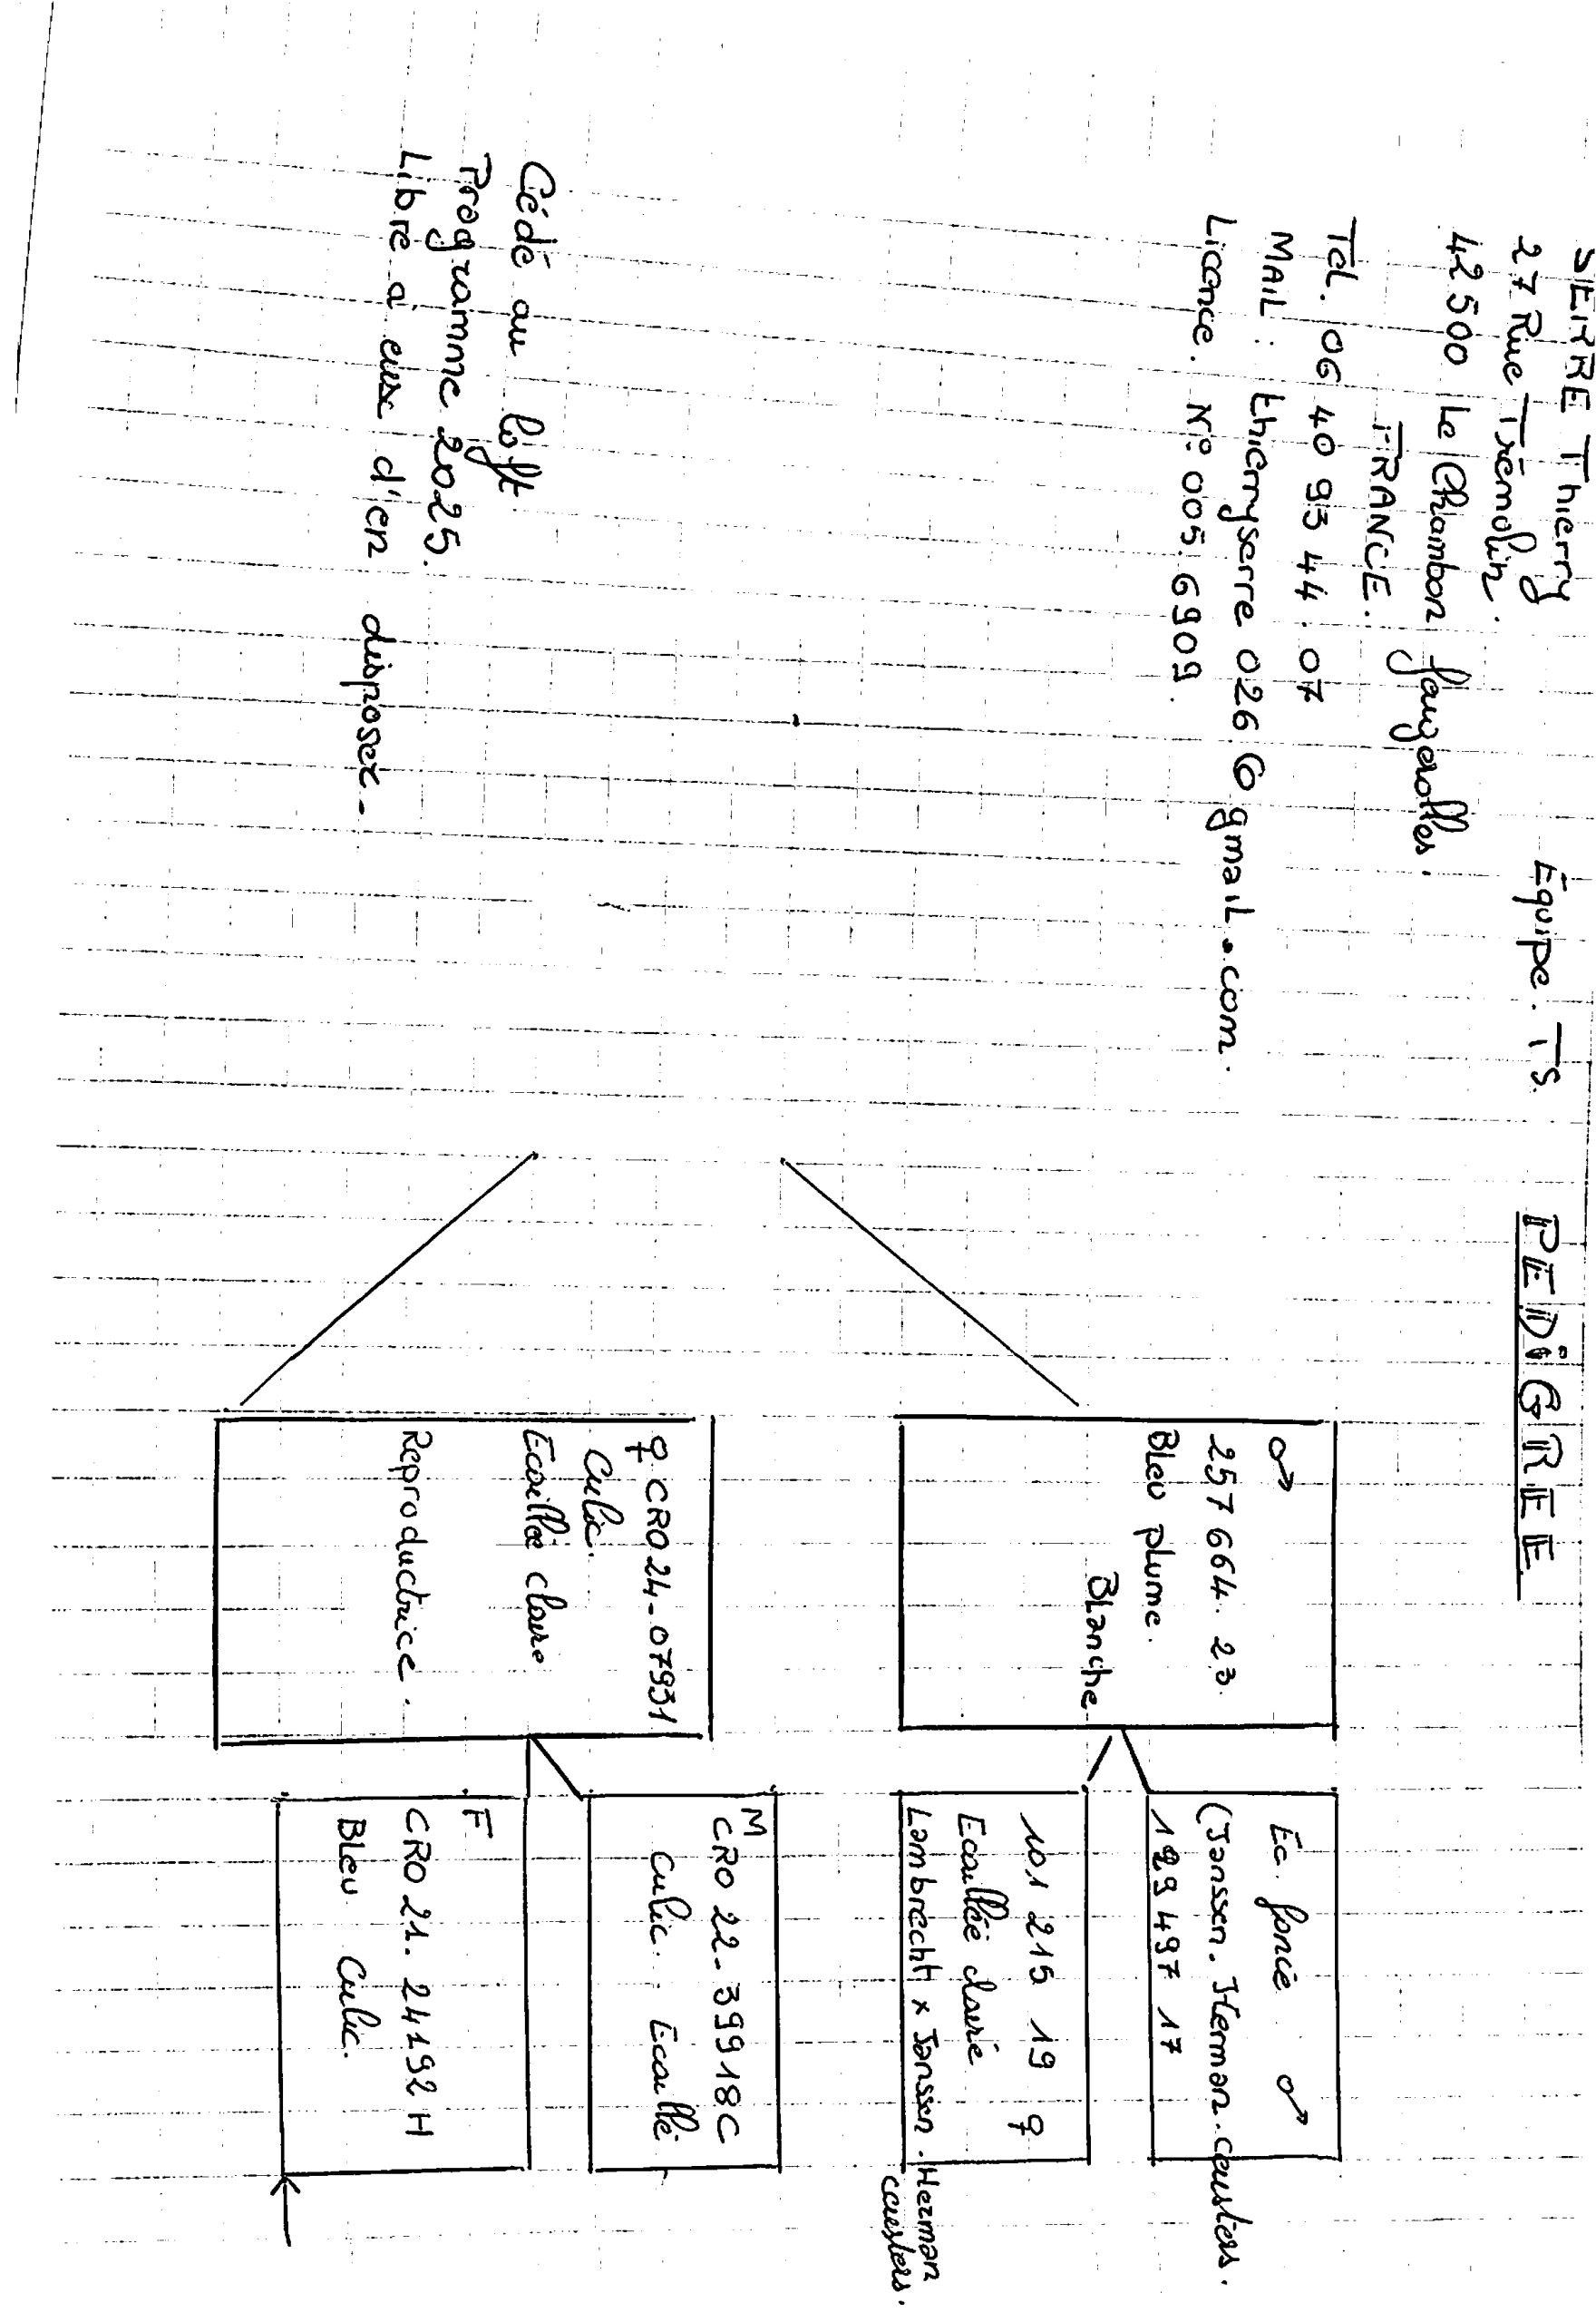 SERRE Thierry
27 Rue Trémolin.
42500 le Chambon feugerolles.
FRANCE.
Tel. 06 40 93 44 07
MAIL : thierryserre026@gmail.com
Licence. N° 005. 6909.
Équipe. TS.
PEDIGREE
Cédé au loft
Programme 2025.
Libre à eux d'en disposer-
♂
257 664. 23.
Bleu plume.
Blanche
Ec. foncé ♂
(Janssen. Herman. ceusters.
129 497 17
101 215 19 ♀
Ecaillée claire
Lambrecht x Janssen. Herman
ceusters.
♀ CRO 24-07931
Culic.
Ecaillé claire
Reproductrice.
M
CRO 22-39918C
Culic. Ecaillé
F
CRO 21. 24192 H
Bleu Culic.